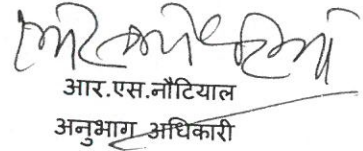 आर.एस.नौटियाल
अनुभाग अधिकारी